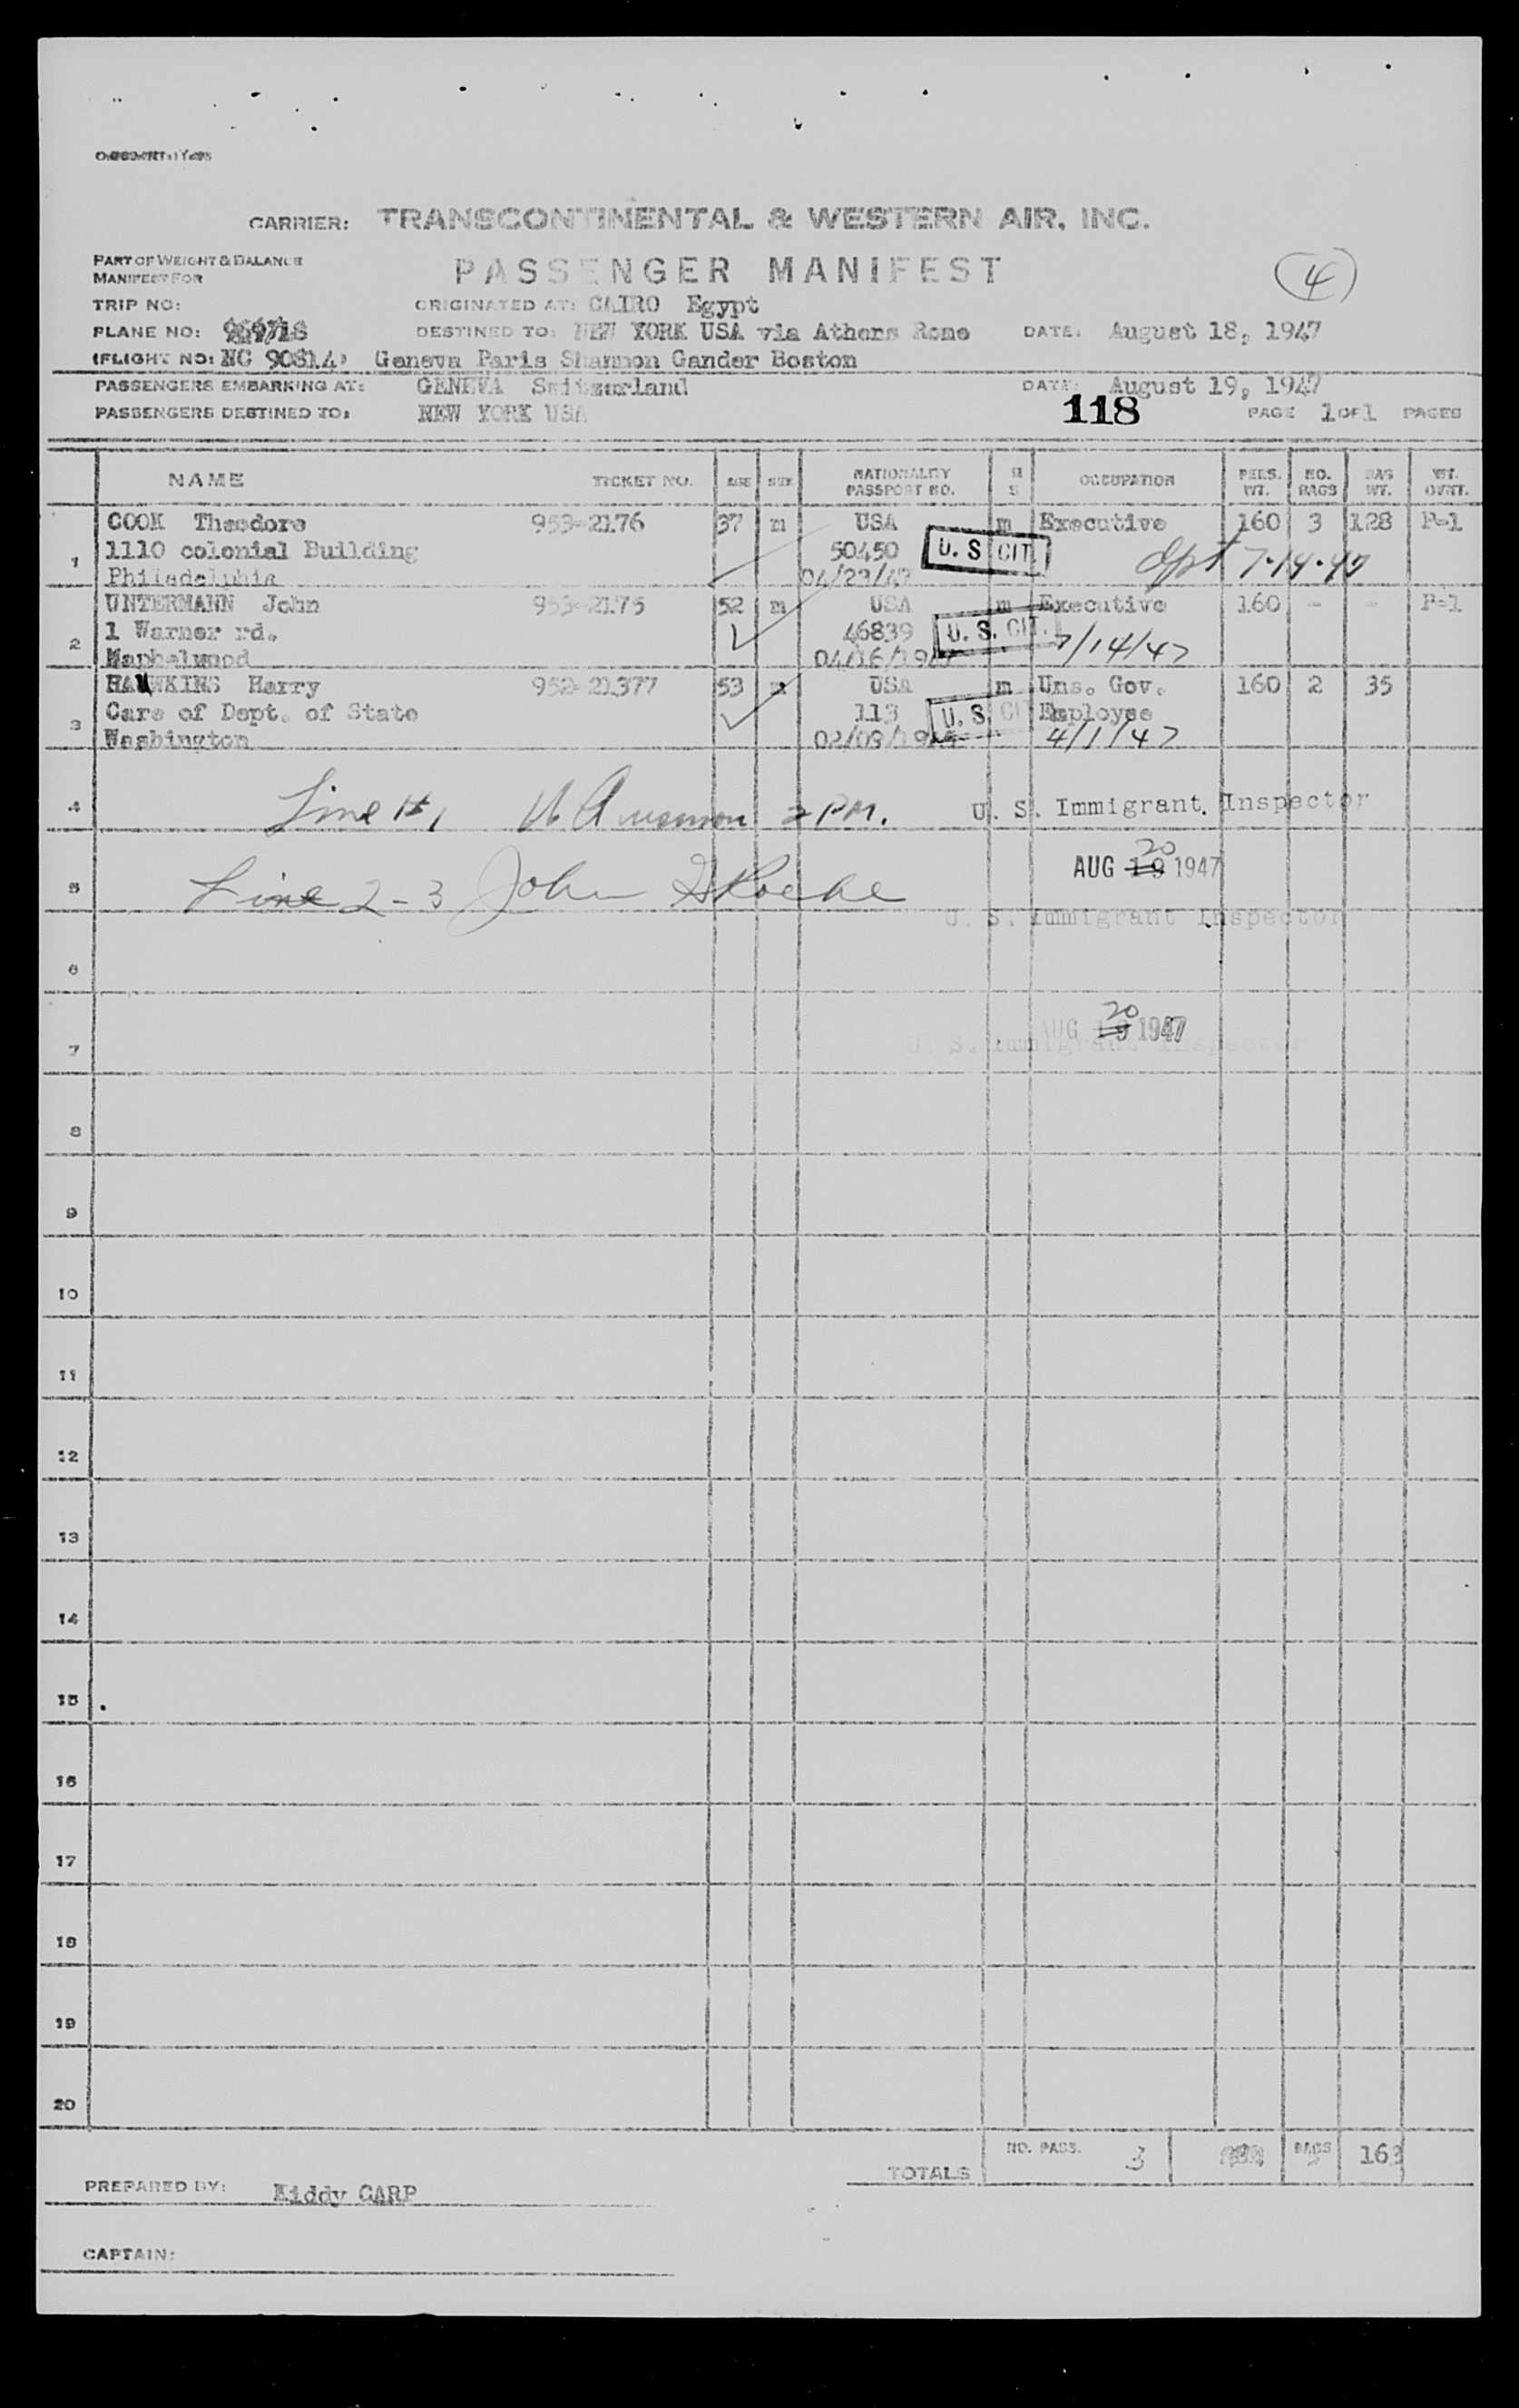 CARRIER: TRANSCONTINENTAL & WESTERN AIR, INC.
PART OF WEIGHT & BALANCE
MANIFEST FOR
PASSENGER MANIFEST
4
TRIP NO:
ORIGINATED AT: CAIRO Egypt
PLANE NO:
DESTINED TO: NEW YORK USA via Athens Rome
DATE: August 18, 1947
(FLIGHT NO: NC 90814) Geneva Paris Shannon Gander Boston
PASSENGERS EMBARKING AT: GENEVA Switzerland
DATE: August 19, 1947
PASSENGERS DESTINED TO: NEW YORK USA
118
PAGE 1 OF 1 PAGES
NAME TICKET NO. AGE SEX NATIONALITY PASSPORT NO. M S OCCUPATION PERS. WT. NO. BAGS BAG WT. WT. OVWT.
1 COOK Theodore 953-2176 37 m USA m Executive 160 3 128 P-1
1110 colonial Building 50450 U. S CIT.
Philadelphia 04/23/47 dpt 7-14-47
2 UNTERMANN John 953-2175 52 m USA m Executive 160 - - P-1
1 Warner rd. 46839 U. S. CIT. 7/14/47
Maphelwood 04/16/1947
3 HAWKINS Harry 952-21377 53 m USA m Uns. Gov. 160 2 35
Care of Dept. of State 113 U. S. CIT Employee
Washington 4/1/47
4 Line #1 2 PM. U. S. Immigrant. Inspector
AUG 19 20 1947
5 Line 2-3 John
U. S. Immigrant Inspector
6
AUG 19 20 1947
7 U. S. Immigrant Inspector
8
9
10
11
12
13
14
15
16
17
18
19
20
TOTALS NO. PASS. 3 BAGS 163
PREPARED BY: Kiddy CARP
CAPTAIN: